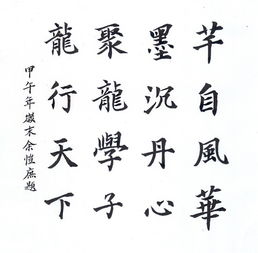 芊自風華
墨沉丹心
聚龍學子
龍行天下
甲午年歲末余愷庶題